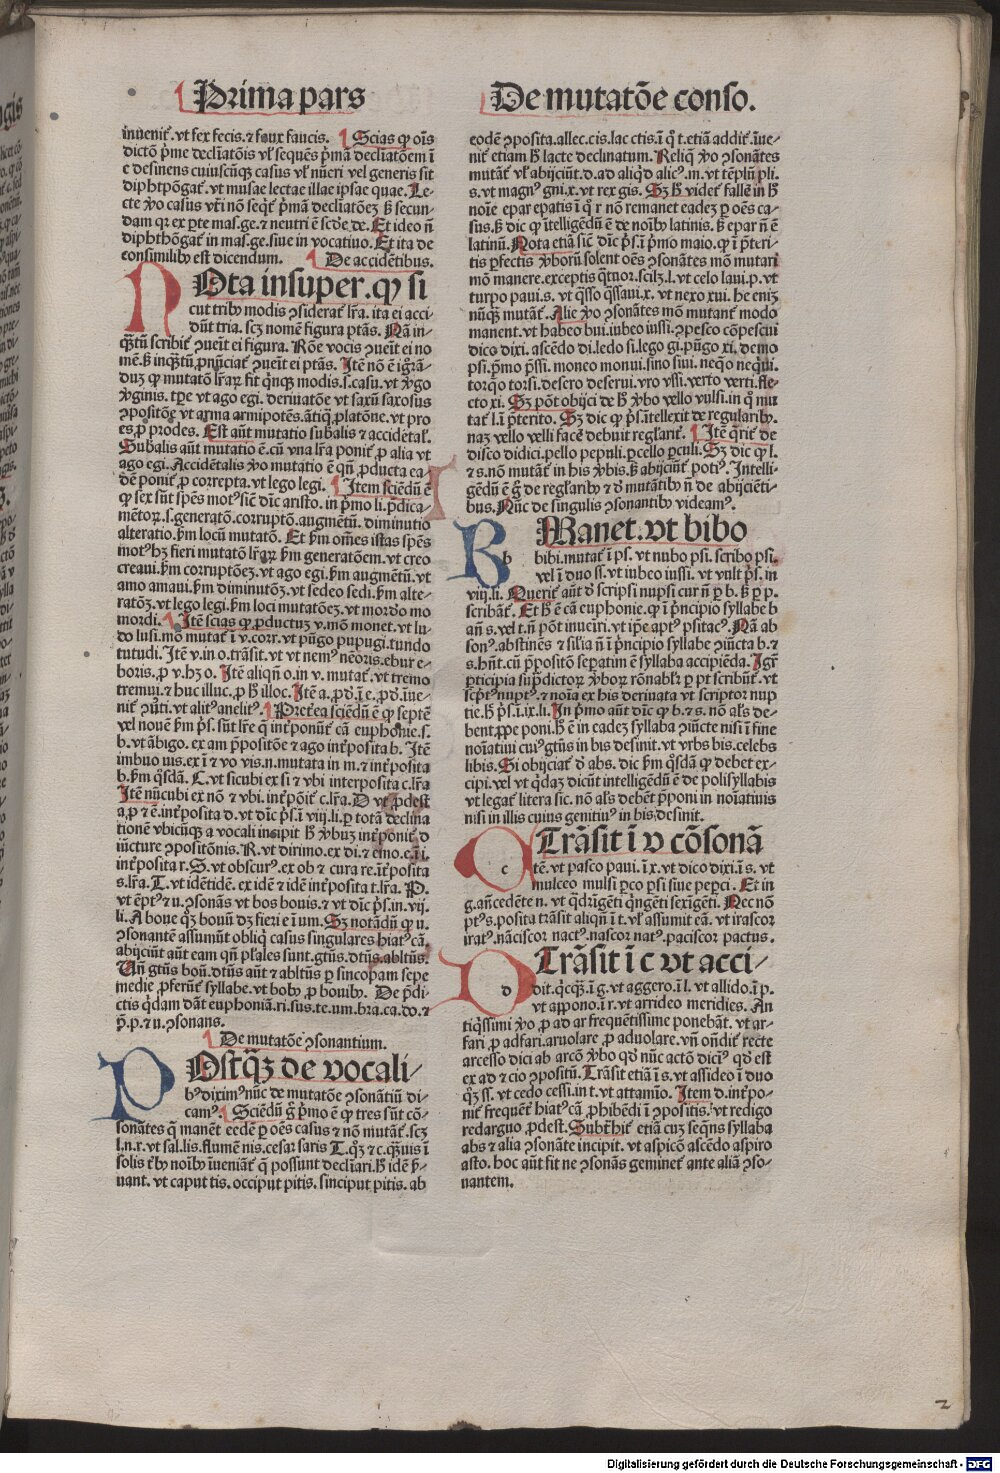 Prima pars
De mutatõe conso.
inuenit̃. vt fex fecis. ⁊ faux faucis. Scias ꝙ oĩs
dictõ pr̃me declĩatõis vl̃ sequẽs pr̃mã declĩatõem ĩ
e desinens cuiuscũqꝫ casus vl̃ nũeri vel generis sit
diphtõgat̃. vt musae lectae illae ipsae quae. Le-
cte ꝟo casus vt̃i nõ seqt̃ pr̃mã declĩatõeꝫ sꝫ secun-
dam qꝛ ex ꝑte mas.ge. ⁊ neutri ẽ scd̃e dc̃. Et ideo ñ
diphthõgat̃ in mas.ge. siue in vocatiuo. Et ita de
consimilibꝰ est dicendum. De accidẽtibus.
NOta insuper. ꝙ si
cut tribꝰ modis ꝯsiderat̃ lr̃a. ita ei acci-
dũt tria. scꝫ nomẽ figura ptãs. Nã in-
qñtũ scribit̃ ꝯueit ei figura. Rõe vocis ꝯueit ei no
mẽ. sꝫ inqñtũ ꝓnũciat̃ ꝯueit ei ptãs. Itẽ nõ ẽ igr̃ã-
duꝫ ꝙ mutatõ lr̃aꝝ fit q̃nqꝫ modis. s. casu. vt ꝟgo
ꝟginis. tꝑe vt ago egi. deriuatõe vt saxũ saxosus
ꝯpositõe vt arma armipotẽs. ãtiq̃ ꝓ platõne. vt pro
es ꝓ prodes. Est aũt mutatio sub̃alis ⁊ accidẽtal̃.
Sub̃alis aũt mutatio ẽ. cũ vna lr̃a ponit̃ ꝓ alia vt
ago egi. Accidẽtalis ꝟo mutatio ẽ qñ ꝓducta ea-
dẽ ponit̃ ꝓ correpta. vt lego legi. Item sciẽdũ ẽ
ꝙ sex sũt spẽs motꝰ siẽ dic̃ aristo. in pr̃mo li. p̃dica-
mẽtoꝝ. s. generatõ. corruptõ. augmẽtũ. diminutio
alteratio. ẜm locũ mutatõ. Et ẜm om̃es istas spẽs
motꝰ hꝫ fieri mutatõ lr̃aꝝ ẜm generatõem. vt creo
creaui. ẜm corruptõeꝫ. vt ago egi. ẜm augmẽtũ. vt
amo amaui. ẜm diminutõꝫ. vt sedeo sedi. ẜm alte-
ratõꝫ. vt lego legi. ẜm loci mutatõeꝫ. vt mordeo mo
mordi. Itẽ scias ꝙ ꝓductuꝫ v. mõ monet. vt lu-
do lusi. mõ mutat̃ ĩ v. corr. vt pũgo pupugi. tundo
tutudi. Itẽ v. in o. trãsit. vt vt nemꝰ nẽoris. ebur e-
boris. ꝓ v. hꝫ o. Itẽ aliqñ o. in v. mutat̃. vt tremo
tremui. ⁊ huc illuc. ꝓ hͦ illoc. Itẽ a. ꝓ d. ĩ e. ꝓ d. iue-
nit̃ ꝯũti. vt alitꝰ anelitꝰ. Pret̃ea sciẽdũ ẽ ꝙ septẽ
vel nouẽ ẜm p̃s. sũt lr̃e q̃ int̃ponũt̃ cã euphonie. s.
b. vt ãbigo. ex am p̃positõe ⁊ ago int̃posita b. Itẽ
imbuo uis. ex ĩ ⁊ vo vis. n. mutata in m. ⁊ int̃posita
b. ẜm q̃sdã. C. vt sicubi ex si ⁊ vbi interposita c. lr̃a
Itẽ nũcubi ex nõ ⁊ vbi. int̃põit̃ c. lr̃a. D vt ꝓdest
a. ꝓ ⁊ ẽ. int̃posita d. vt dic̃ p̃s. ĩ viij. li. ꝑ totã declina
tionẽ vbicũqꝫ a vocali incipit hͦ ꝟbuꝫ int̃ponit̃ d
iũcture ꝯpositõnis. R. vt dirimo. ex di. ⁊ emo. e. ĩ i.
int̃posita r. S. vt obscurꝰ. ex ob ⁊ cura re. ĩt̃posita
s. lr̃a. T. vt idẽtidẽ. ex idẽ ⁊ idẽ int̃posita t. lr̃a. P.
vt ẽptꝰ ⁊ u. ꝯsonãs vt bos bouis. ⁊ vt dic̃ p̃s. in. vij.
li. A boue q̃ꝫ bouũ dꝫ fieri ⁊ ĩ um. Sꝫ notãdũ ꝙ u.
ꝯsonantẽ assumũt obliq̃ casus singulares hiatꝰ cã.
abijciũt aũt eam qñ pl̃ales sunt. gtũs. dtũs. abltũs.
Uñ gtũs boũ. dtũs aũt ⁊ abltũs ꝑ sincopam sepe
medie ꝓferũt̃ syllabe. vt bobꝰ ꝓ bouibꝰ. De p̃di-
ctis q̃dam dãt euphoniã. ri. sus. te. um. bra. ca. do. ⁊
p̃. p. ⁊ u. ꝯsonans.
De mutatõe ꝯsonantium.
POstq̃ꝫ de vocali/
bꝰ diximꝰ nũc de mutatõe ꝯsonãtiũ di-
camꝰ. Sciẽdũ g̃ pr̃mo ẽ ꝙ tres sũt cõ-
sonãtes q̃ manẽt eedẽ ꝑ oẽs casus ⁊ nõ mutãt̃. scꝫ
l. n. r. vt sal. lis. flumẽ nis. cesar saris T. q̃ꝫ ⁊ c. q̃uis ĩ
solis trib̃ noĩbꝰ iueniãt̃ q̃ possunt declĩari. hͦ idẽ p̃-
uant. vt caput tis. occiput pitis. sinciput pitis. ab
eodẽ ꝯposita. allec. cis. lac ctis. ĩ q̃ t. etiã addit̃. iue-
nit̃ etiam hͦ lacte declinatum. Reliq̃ ꝟo ꝯsonãtes
mutãt̃ vl̃ abijciũt̃. d. ad aliqd̃ alicꝰ. m. vt tẽplũ pli.
s. vt magnꝰ gni. x. vt rex gis. Sꝫ hͦ videt̃ fallẽ in hͦ
noĩe epar epatis ĩ q̃ r nõ remanet eadeꝫ ꝑ oẽs ca-
sus. sꝫ dic ꝙ ĩtelligẽdũ ẽ de noĩbꝰ latinis. sꝫ epar ñ ẽ
latinũ. Nota etiã siẽ dic̃ p̃s. ĩ pr̃mo maio. ꝙ ĩ p̃teri-
tis ꝑfectis ꝟboꝝ solent oẽs ꝯsonãtes mõ mutari
mõ manere. exceptis q̃tuoꝛ. scilꝫ. l. vt celo laui. p. vt
turpo paui. s. vt q̃sso q̃ssaui. x. vt nexo xui. he eniꝫ
nũqꝫ mutãt̃. Alie ꝟo ꝯsonãtes mõ mutant̃ modo
manent. vt habeo bui. iubeo iussi. ꝯpesco cõpescui
dico dixi. ascẽdo di. ledo si. lego gi. pũgo xi. demo
psi. pr̃mo p̃ssi. moneo monui. sino siui. neqo nequi.
torqo torsi. desero deserui. vro vssi. verto verti. fle-
cto xi. Sꝫ põt obijci de hͦ ꝟbo vello vulsi. in q̃ mu
tat̃ l. ĩ p̃terito. Sꝫ dic ꝙ p̃s. ĩtellexit de regularibꝰ.
naꝫ vello velli facẽ debuit regl̃ant̃. Itẽ q̃rit̃ de
disco didici. pello pepuli. ꝑcello ꝑculi. Sꝫ dic ꝙ l.
⁊ s. nõ mutãt̃ in his ꝟbis. sꝫ abijciũt̃ potiꝰ. Intelli-
gẽdũ ẽ g̃ de regl̃aribꝰ ⁊ d̃ mutãtibꝰ ñ de abijciẽti-
bus. Nũc de singulis ꝯsonantibꝰ videamꝰ.
B Manet. vt bibo
b bibi. mutat̃ ĩ ps. vt nubo psi. scribo psi.
vel ĩ duo ss. vt iubeo iussi. vt vult p̃s. in
viij. li. Querit̃ aũt d̃ scripsi nupsi cur ñ ꝑ b. sꝫ ꝑ p.
scribãt̃. Et hͦ ẽ cã euphonie. ꝙ ĩ p̃ncipio syllabe b
añ s. vel t. ñ põt inueĩri. vt ip̃e aptꝰ psitacꝰ. Nã ab
sonꝰ. abstinẽs ⁊ sil̃ia ñ ĩ p̃ncipio syllabe ꝯiũcta b. ⁊
s. hñt. cũ p̃positõ sep̃atim ẽ syllaba accipiẽda. Igr̃
ꝑticipia supr̃dictoꝝ ꝟboꝝ rõnabl̃r ꝑ pt scribũt̃. vt
scptꝰ nuptꝰ. ⁊ noĩa ex his deriuata vt scriptor nup
tie. hͦ p̃s. ĩ. ix. li. In pr̃mo aũt dic̃ ꝙ b. ⁊ s. nõ al̃s de-
bent̃. ꝓpe poni. hͦ ẽ in eadeꝫ syllaba ꝯiũcte nisi ĩ fine
noĩatiui cuiꝰ gtũs in bis desinit. vt vrbs bis. celebs
libis. Si obijciat̃ d̃ abs. dic ẜm q̃sdã ꝙ debet ex-
cipi. vel vt q̃daꝫ dicũt intelligẽdũ ẽ de polisyllabis
vt legat̃ litera sic. nõ al̃s debẽt p̃poni in noĩatiuis
nisi in illis cuius genitiuꝰ in bis desinit.
C Trãsit ĩ v cõsonã
c tẽ. vt pasco paui. ĩ x. vt dico dixi. ĩ s. vt
mulceo mulsi ꝑco ꝑsi siue peꝑci. Et in
g. añcedẽte n. vt q̃drĩgẽti q̃ngẽti sexĩgẽti. Nec nõ
ptꝰ s. posita trãsit aliqñ ĩ t. vl̃ assumit eã. vt irascor
iratꝰ. nãciscor nactꝰ. nascor natꝰ. paciscor pactus.
D Trãsit ĩ c vt acci/
d dit. q̃cq̃ꝫ. ĩ g. vt aggero. ĩ l. vt allido. ĩ p.
vt appono. ĩ r. vt arrideo meridies. An
tiq̃ssimi ꝟo ꝓ ad ar frequẽtissime ponebãt. vt ar-
fari ꝓ adfari. aruolare ꝓ aduolare. vñ oñdit̃ recte
arcesso dici ab arcõ ꝟbo qd̃ nũc actõ dicit̃ qd̃ est
ex ad ⁊ cio ꝯpositũ. Trãsit etiã ĩ s. vt assideo ĩ duo
q̃ꝫ ss. vt cedo cessi. in t. vt attamĩo. Item d. int̃po-
nit̃ frequẽt̃ hiatꝰ cã ꝓhibẽdi ĩ ꝯpositis. vt redigo
redarguo ꝓdest. Subt̃hit̃ etiã cuꝫ seqñs syllaba
abs ⁊ alia ꝯsonãte incipit. vt aspicõ ascẽdo aspiro
asto. hoc aũt fit ne ꝯsonãs geminet̃ ante aliã ꝯso-
nantem.
2
Digitalisierung gefördert durch die Deutsche Forschungsgemeinschaft - DFG